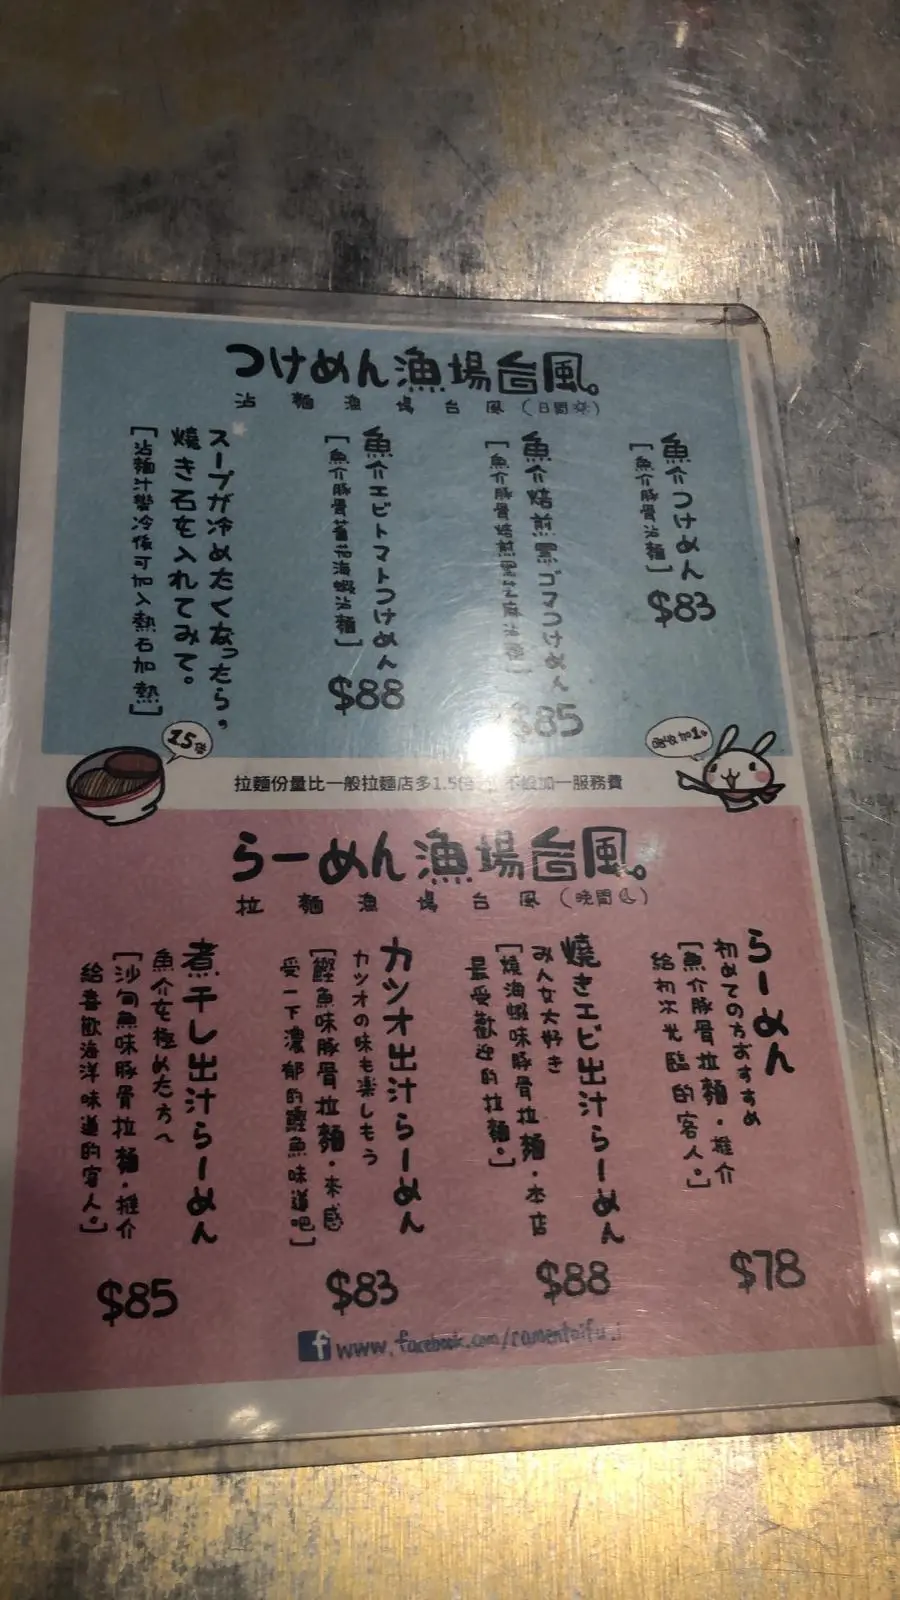 つけめん漁場台風。
沾麵漁場台風(日間)
魚介つけめん
[魚介豚骨沾麵]
$83
魚介焙煎黒ゴマつけめん
[魚介豚骨焙煎黑芝麻沾麵]
$85
魚介エビトマトつけめん
[魚介豚骨蕃茄海蝦沾麵]
$88
スープが冷めたくなったら,
焼き石を入れてみて。
[沾麵汁變冷後可加入熱石加熱]
1.5倍
加1。
拉麵份量比一般拉麵店多1.5倍 不設加一服務費
らーめん漁場台風。
拉麵漁場台風(晚間)
らーめん
初めての方おすすめ
[魚介豚骨拉麵・推介
給初次光臨的客人。]
$78
焼きエビ出汁らーめん
みんな大好き
[燒海蝦味豚骨拉麵・本店
最受歡迎的拉麵。]
$88
カツオ出汁らーめん
カツオの味も楽しもう
[鰹魚味豚骨拉麵・來感
受一下濃郁的鰹魚味道吧]
$83
煮干し出汁らーめん
魚介を極めた方へ
[沙甸魚味豚骨拉麵・推介
給喜歡海洋味道的客人。]
$85
f www.facebook.com/ramentaifu